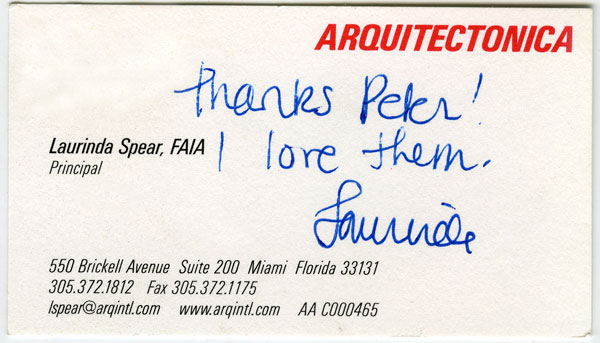 ARQUITECTONICA
Thanks Peter!
Laurinda Spear, FAIA
I love them.
Principal
Laurinda
550 Brickell Avenue Suite 200 Miami Florida 33131
305.372.1812 Fax 305.372.1175
lspear@arqintl.com www.arqintl.com AA C000465